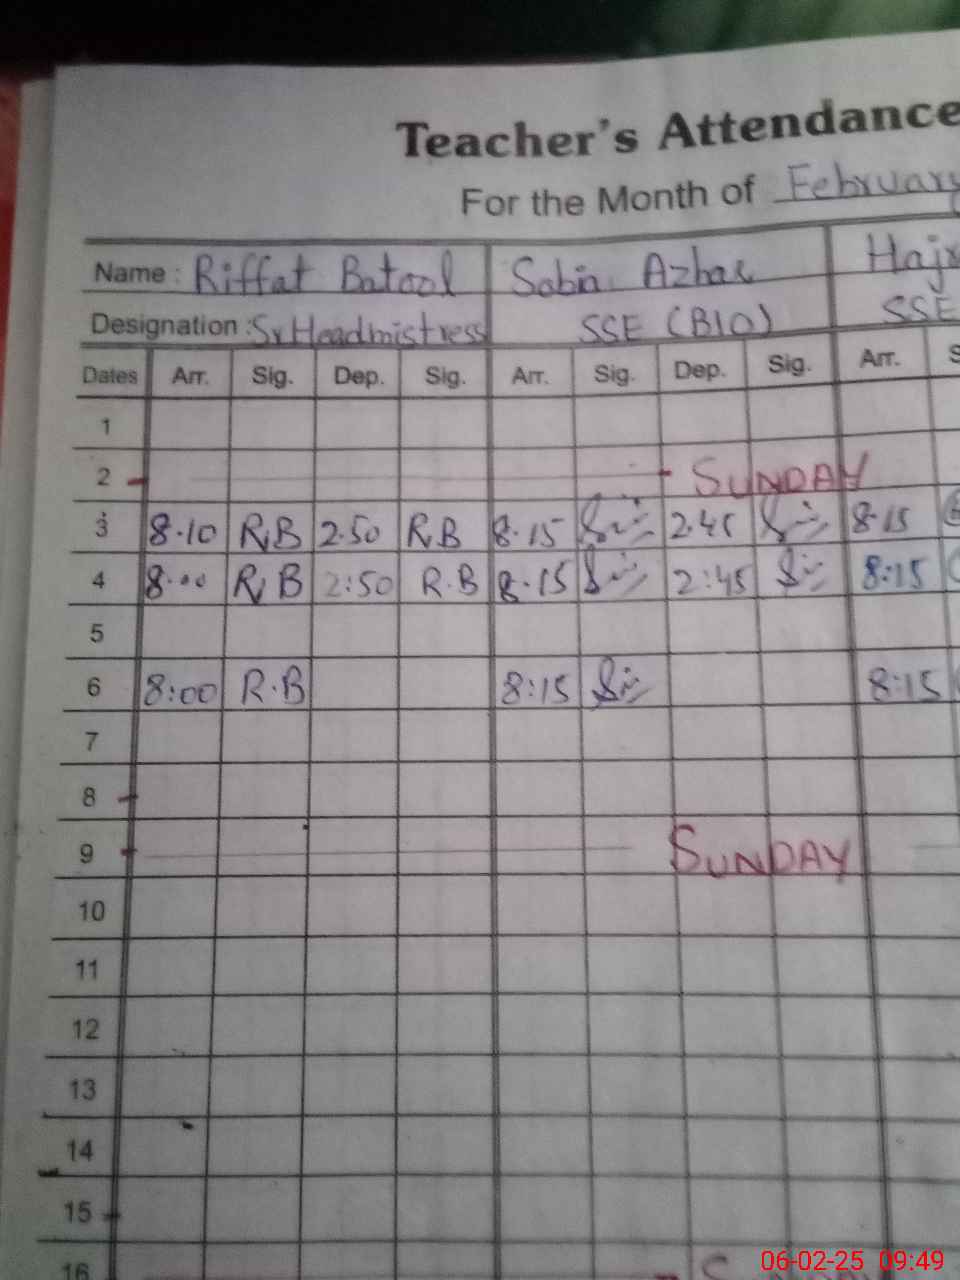 Teacher's Attendance
For the Month of February
Name : Riffat Batool Sobia Azhar
Designation : Sr Headmistress SSE (BIO) SSE
Dates Arr. Sig. Dep. Sig. Arr. Sig. Dep. Sig. Arr.
1
2 SUNDAY
3 8.10 R.B 2.50 R.B 8.15 2.45 8.15
4 8.00 R.B 2:50 R.B 8.15 2:45 8:15
5
6 8:00 R.B 8:15 8:15
7
8
9 SUNDAY
10
11
12
13
14
15
16
06-02-25 09:49